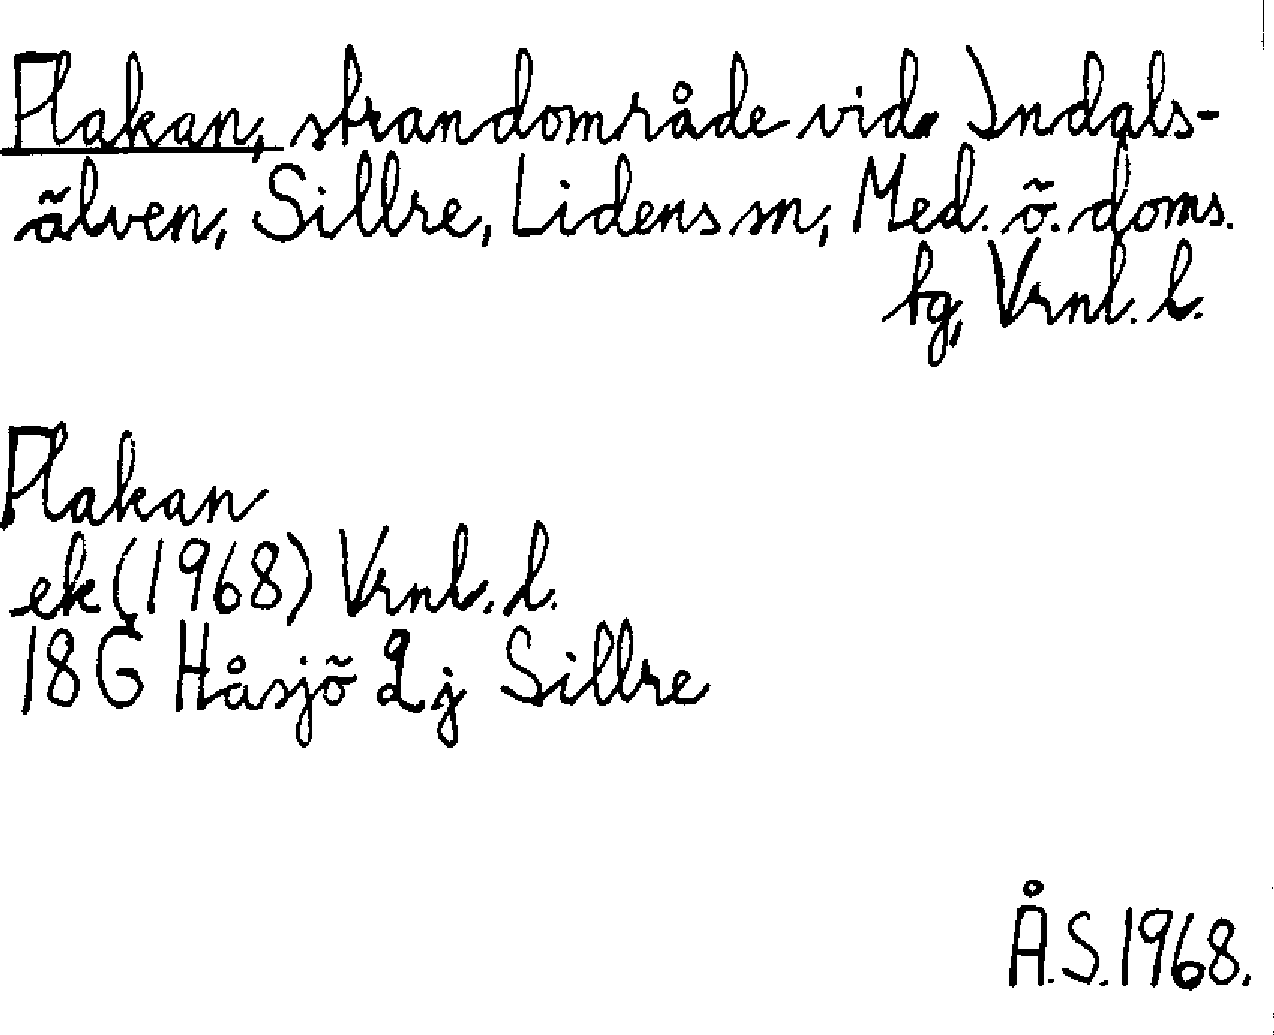 Plakan, strandområde vid Indals-
älven, Sillre, Lidens sn, Med. ö. doms.
tg, Vrnl. l.
Plakan
ek (1968) Vrnl. l.
18G Håsjö 2j Sillre
Å.S.1968.